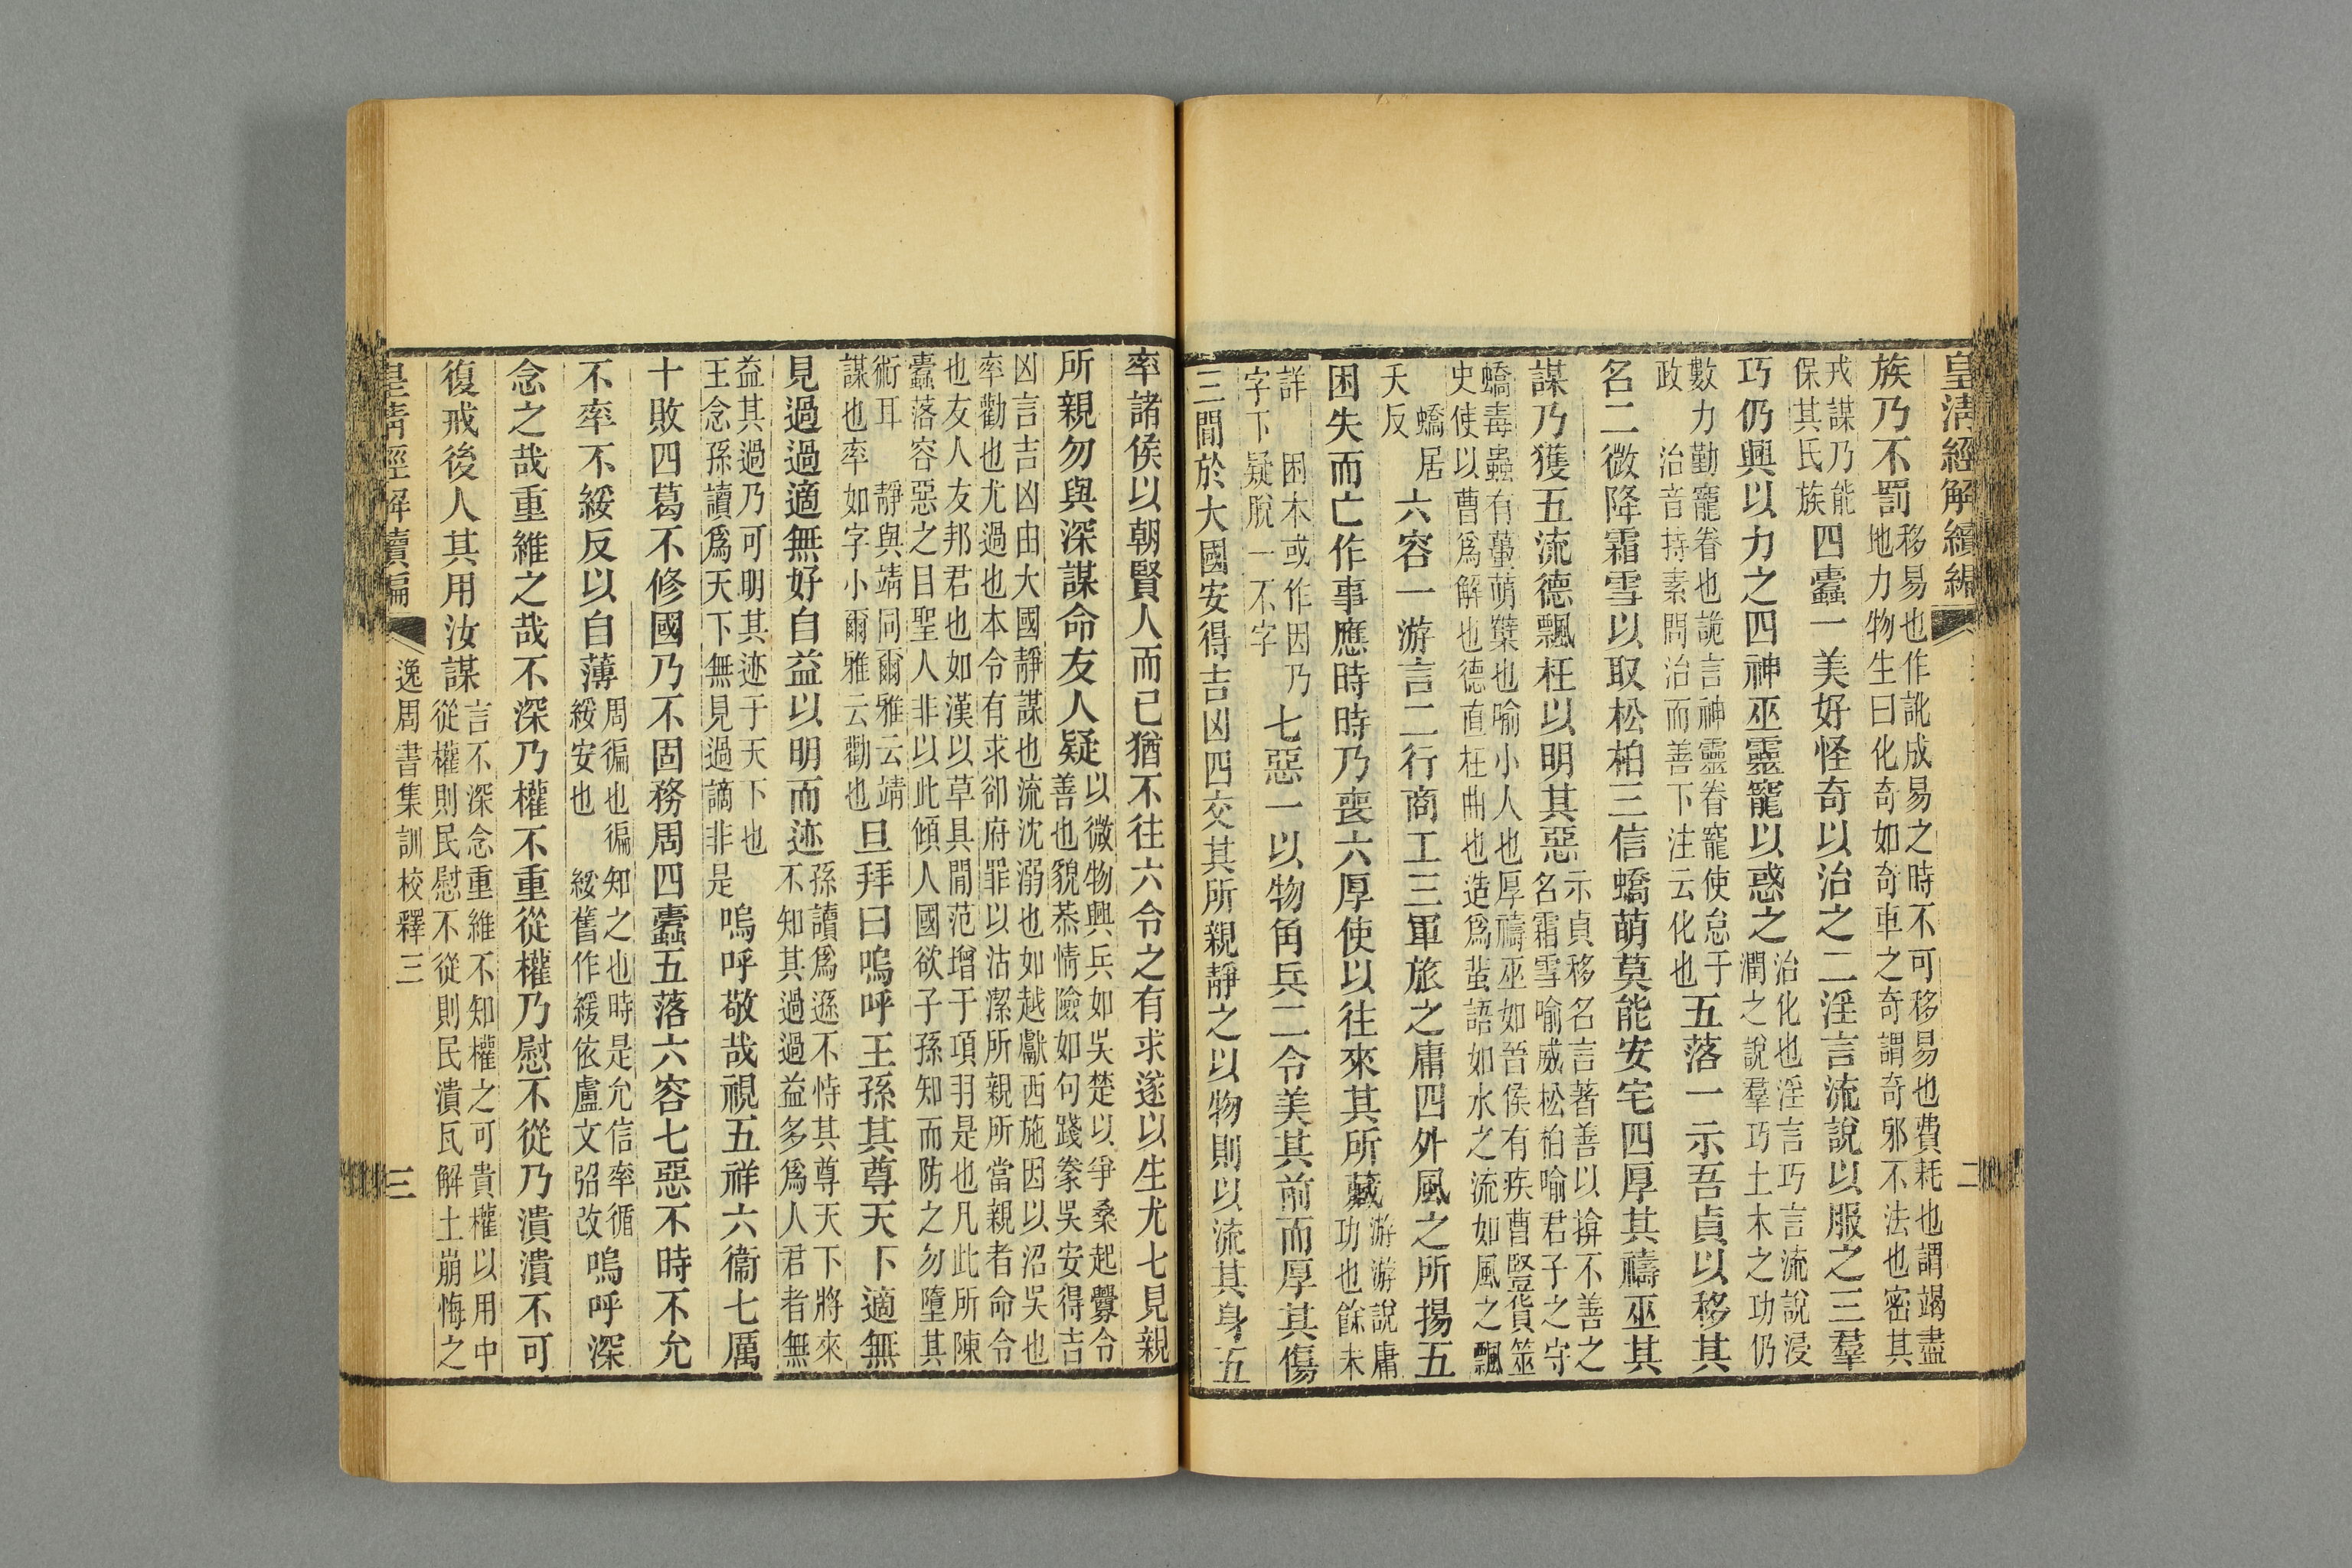 皇淸經解續編
二
族乃不罰移易也作訛成易之時不可移易也費耗也謂竭盡
地力物生曰化奇如奇車之奇謂奇邪不法也密其
戎謀乃能
保其氏族四蠹一美好怪奇以治之二淫言流說以服之三羣
巧仍興以力之四神巫靈寵以惑之治化也淫言巧言流說浸
潤之說羣巧土木之功仍
數力勤寵眷也詭言神靈眷寵使怠于
政治音持素問治而善下注云化也五落一示吾貞以移其
名二微降霜雪以取松柏三信蟜萌莫能安宅四厚其禱巫其
謀乃獲五流德飄枉以明其惡示貞移名言著善以揜不善之
名霜雪喻威松柏喻君子之守
蟜毒蟲有蠆萌櫱也喻小人也厚禱巫如晉侯有疾曹豎貨筮
史使以曹爲解也德直枉曲也造爲蜚語如水之流如風之飄
蟜居
夭反六容一游言二行商工三軍旅之庸四外風之所揚五
困失而亡作事應時時乃喪六厚使以往來其所藏游游說庸
功也餘未
詳困本或作因乃
字下疑脫一不字七惡一以物角兵二令美其前而厚其傷
三閒於大國安得吉凶四交其所親靜之以物則以流其身五
率諸侯以朝賢人而已猶不往六令之有求遂以生尤七見親
所親勿與深謀命友人疑以微物興兵如吳楚以爭桑起釁令
善也貌恭情險如句踐豢吳安得吉
凶言吉凶由大國靜謀也流沈溺也如越獻西施因以沼吳也
率勸也尤過也本令有求卻府罪以沽潔所親所當親者命令
也友人友邦君也如漢以草具閒范增于項羽是也凡此所陳
蠹落容惡之目聖人非以此傾人國欲子孫知而防之勿墮其
術耳靜與靖同爾雅云靖
謀也率如字小爾雅云勸也旦拜曰嗚呼王孫其尊天下適無
見過過適無好自益以明而迹孫讀爲遜不恃其尊天下將來
不知其過過益多爲人君者無
益其過乃可明其迹于天下也
王念孫讀爲天下無見過謫非是嗚呼敬哉視五祥六衞七厲
十敗四葛不修國乃不固務周四蠹五落六容七惡不時不允
不率不綏反以自薄周徧也徧知之也時是允信率循
綏安也綏舊作緩依盧文弨改嗚呼深
念之哉重維之哉不深乃權不重從權乃慰不從乃潰潰不可
復戒後人其用汝謀言不深念重維不知權之可貴權以用中
從權則民慰不從則民潰瓦解土崩悔之
皇淸經解續編
逸周書集訓校釋三
三